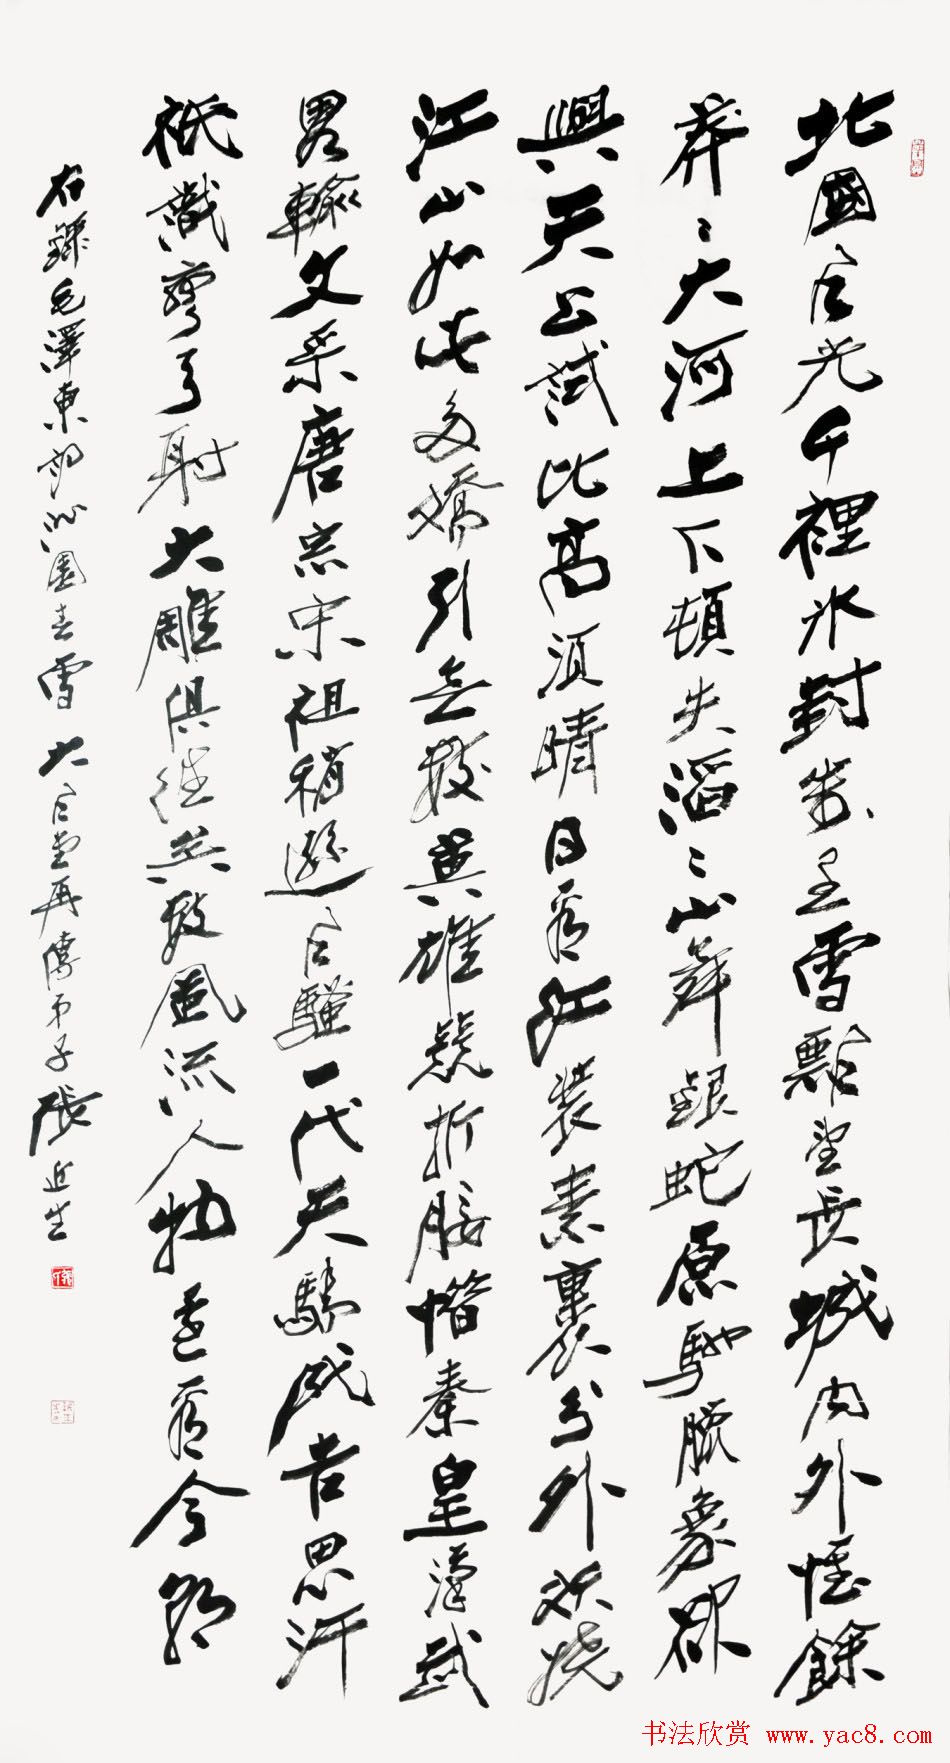 北國風光千裡冰封萬里雪飄望長城內外惟餘
莽〻大河上下頓失滔〻山舞銀蛇原馳臘象欲
與天公試比高須晴日看紅裝素裹分外妖嬈
江山如此多嬌引無數英雄競折腰惜秦皇漢武
畧輸文采唐宗宋祖稍遜風騷一代天驕成吉思汗
祇識彎弓射大雕俱往矣數風流人物還看今朝
右錄毛澤東詞沁園春雪 大風堂再傳弟子張近生
书法欣赏 www.yac8.com